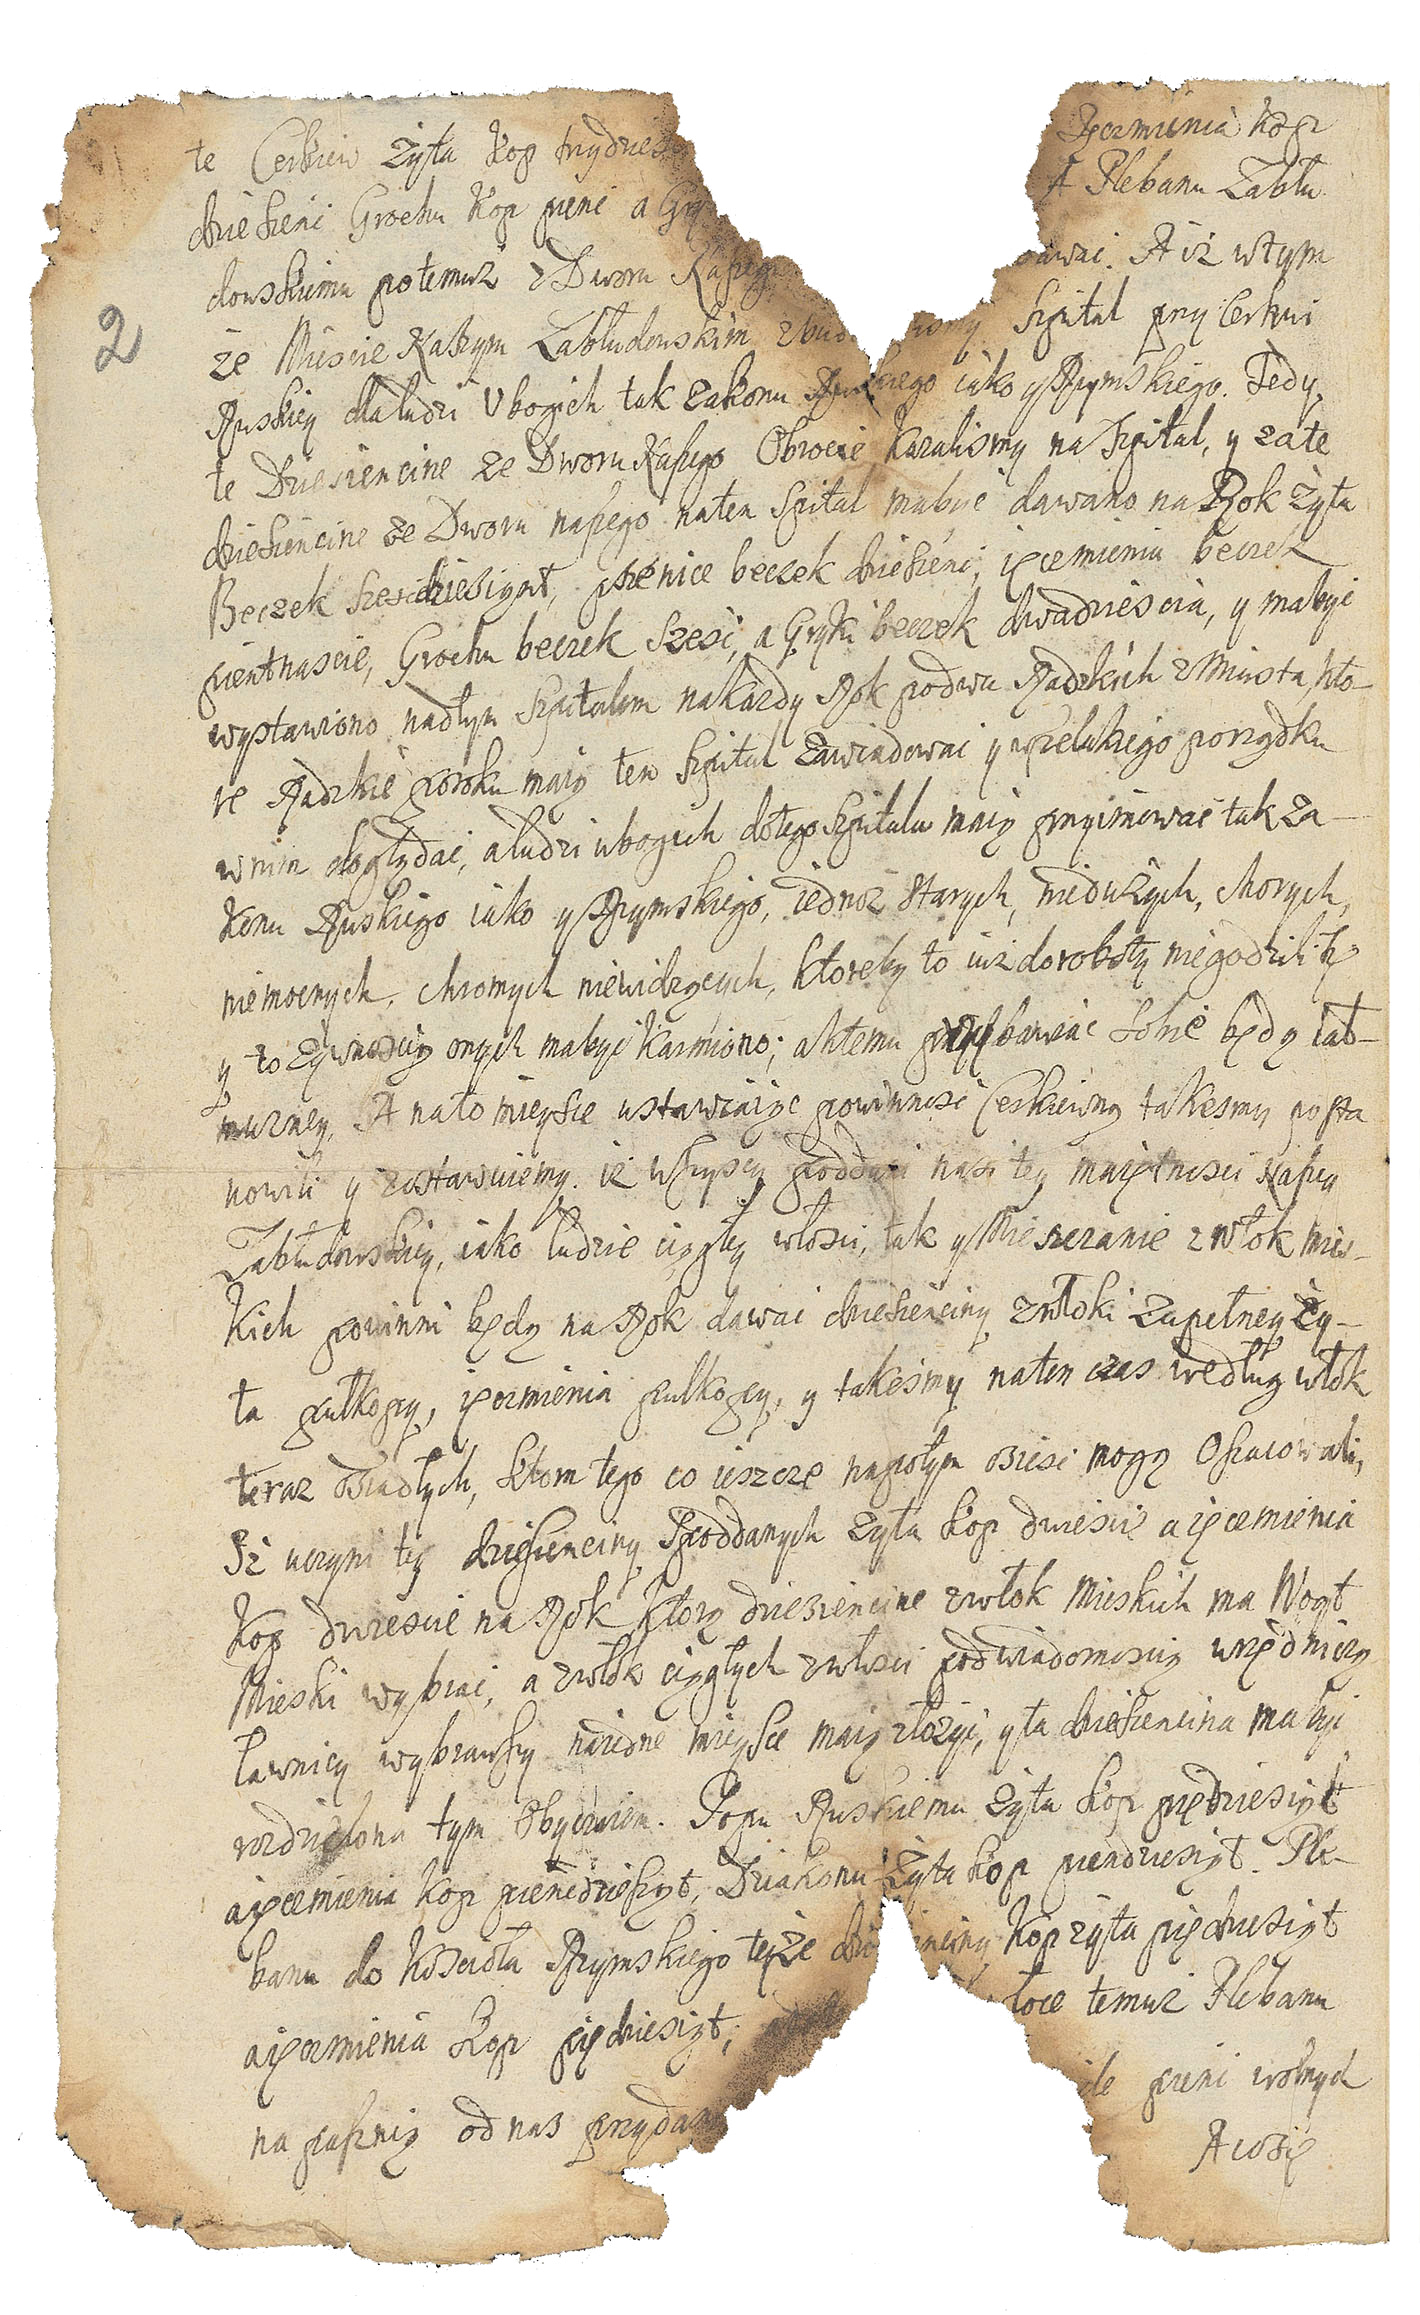 te Cerkiew żyta kop trydzies Jęczmienia kop
dziesienć Grochu kop pienć a Gry A Plebanu Zabłu
dowskiemu potemuż z Dworu Naszego dawać. A iż wtym
że Mieście Naszym Zabłudowskim zbud Szpital przy Cerkwi
Ruskiey dla ludzi Vbogich tak Zakonu Ruskiego iako y Rzymskiego. Tedy
te Dziesiencine ze Dworu Naszego Obrocić kazalismy na Szpital, y zate
dziesiencine ze Dworu naszego naten Szpital mabyć dawano na Rok żyta
Beczek sześćdziesiąt, pszenice beczek dziesienć, ięczmieniu beczek
pientnascie, Grochu beczek sześć, a Gryki beczek dwadziescia, y mabyć
wystawiono nadtym Szpitalem nakażdy Rok podwu Radzkich z Miasta, kto-
re Radzkie poroku maią ten Szpital zawiadować y wszelakiego porządku
wnim doglądać, a ludzi ubogich dotego Szpitalu maią przyimować tak Za-
konu Ruskiego iako y Rzymskiego, iednoż starych, niedużych, chorych,
niemocnych, chromych niewidzących, ktoreby to iuż doroboty niegodzili się
y to żywnością onych mabyć karmiono; aktemu przybawiać sobie będą iał-
mużney. A nato mieysce ustawiaiąc powinność Cerkiewną takesmy posta
nowili y zostawuiemy. iż wszyscy poddani nasi tey maiętności Naszey
Zabłudowskiey, iako ludzie ciągłey włości, tak y Mieszczanie zwłok mies-
kich powinni będą na Rok dawać dziesienciny zwłoki zupełney ży-
ta pułkopy, ięczmienia pułkopy, y takesmy naten czas według włok
teraz osiadłych, krom tego co ieszcze napotym osieść mogą Oszacowali,
Iż uczyni tey dziesienciny spoddanych żyta kop dwieście a ięczmienia
kop dwiescie na Rok ktorą dziesiencine zwłok Mieskich ma Woyt
Mieski wybrać, a zwłok ciągłych zwłosci podwiadomoscią urzędniczą
ławnicy wybrawszy naiedne mieysce maią złożyć, y ta dziesiencina ma być
rozdzielona tym Obyczaiem. Popu Ruskiemu żyta kop pędziesiąt
a ięczmienia kop pieńcdziesiąt, Dziakonu żyta kop piendziesiąt. Ple-
banu do Kościoła Rzymskiego teyże dzie ienciny kop żyta pięćdziesiąt
a ięczmienia kop pięćdziesiąt, łoce temuż Plebanu
na pasznią od nas przydan pienć wolnych
A cosię
2